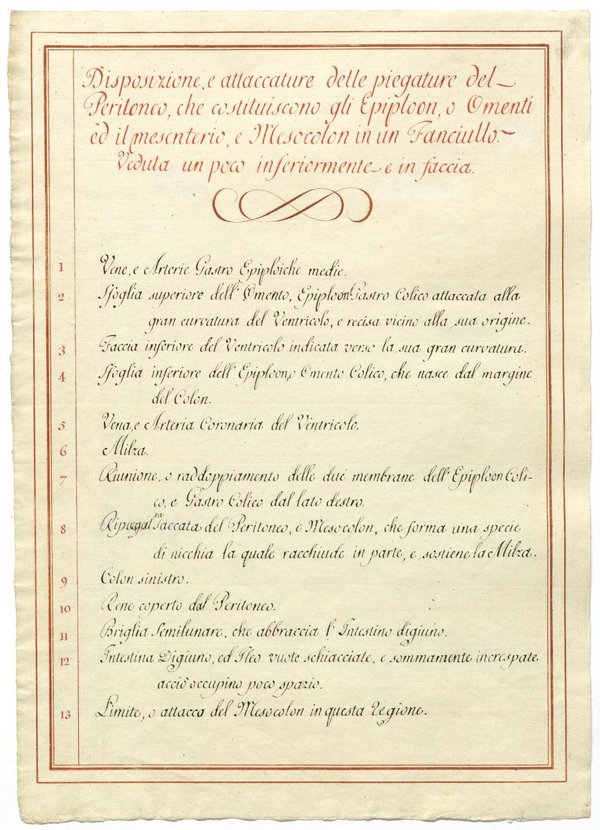 Disposizione, e attaccature delle piegature del
Peritoneo, che costituiscono gli Epiploon, o Omenti
ed il mesenterio, e Mesocolon in un Fanciullo.
Veduta un poco inferiormente e in faccia.
1 Vene, e Arterie Gastro Epiploiche medie.
2 Sfoglia superiore dell' Omento, Epiploon Gastro Colico attaccata alla
gran curvatura del Ventricolo, e recisa vicino alla sua origine.
3 Faccia inferiore del Ventricolo indicata verso la sua gran curvatura.
4 Sfoglia inferiore dell' Epiploon, o Omento Colico, che nasce dal margine
del Colon.
5 Vena, e Arteria Coronaria del Ventricolo.
6 Milza.
7 Riunione, o raddoppiamento delle due membrane dell' Epiploon Coli-
co, e Gastro Colico dal lato destro.
8 Saccata del Peritoneo, e Mesocolon, che forma una specie
di nicchia la quale racchiude in parte, e sostiene la Milza.
9 Colon sinistro.
10 Rene coperto dal Peritoneo.
11 Briglia Semilunare, che abbraccia l' Intestino digiuno.
12 Intestina Digiuno, ed Ileo vuote schiacciate, e sommamente increspate
acciò occupino poco spazio.
13 Limite, o attacco del Mesocolon in questa regione.